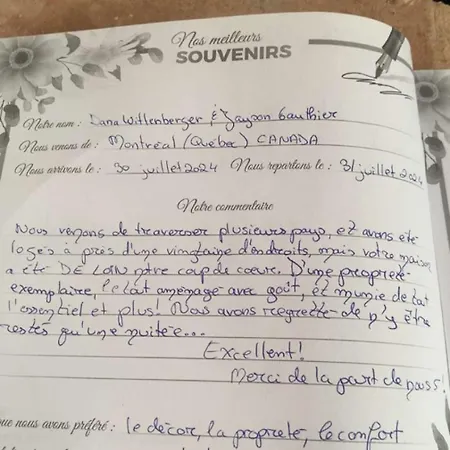 Nos meilleurs
SOUVENIRS
Notre nom : Dana Wittenberger & Jayson Gauthier
Nous venons de : Montréal (Québec) CANADA
Nous arrivons le : 30 juillet 2024 Nous repartons le : 31 juillet 2024
Notre commentaire
Nous venons de traverser plusieurs pays, et avons été
logés à près d'une vingtaine d'endroits, mais votre maison
a été DE LOIN notre coup de coeur. D'une propreté
exemplaire, le tout aménagé avec goût, et munie de tout
l'essentiel et plus! Nous avons regretté de n'y être
restés qu'une nuitée...
Excellent!
Merci de la part de nous!
que nous avons préféré : le décor, la propreté, le confort